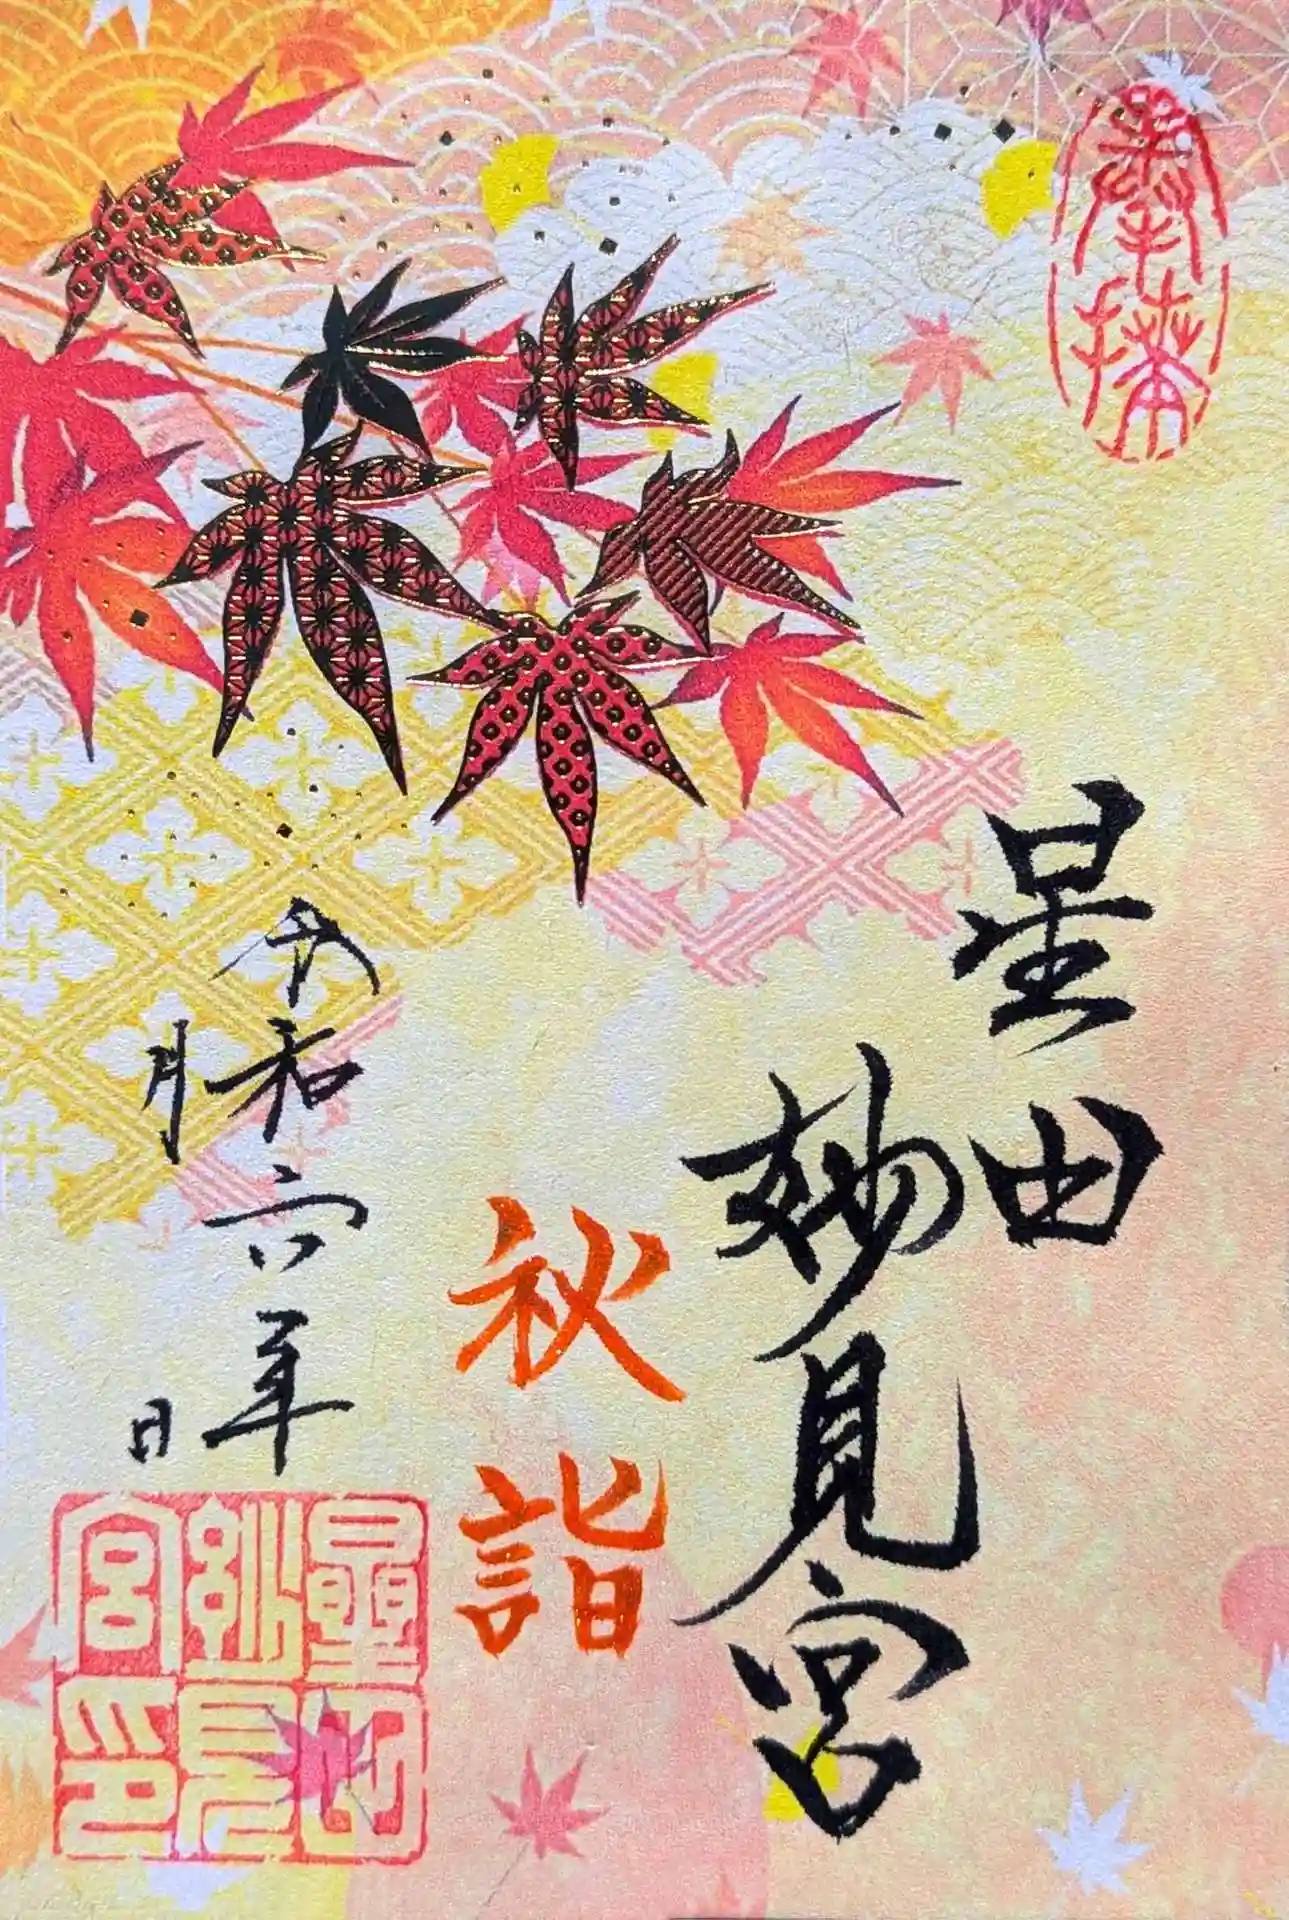 奉拝
星田
妙見宮
秋詣
令和六年
月
日
星田妙見宮印